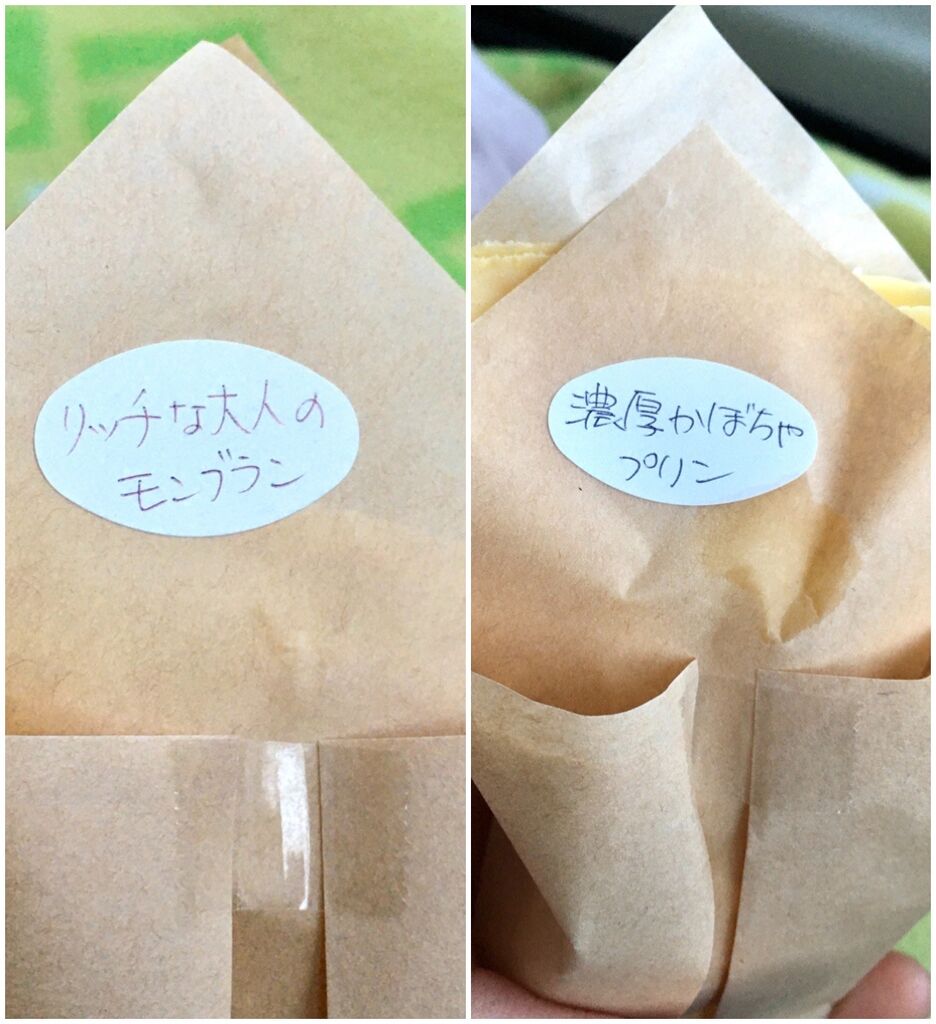 リッチな大人の
モンブラン
濃厚かぼちゃ
プリン